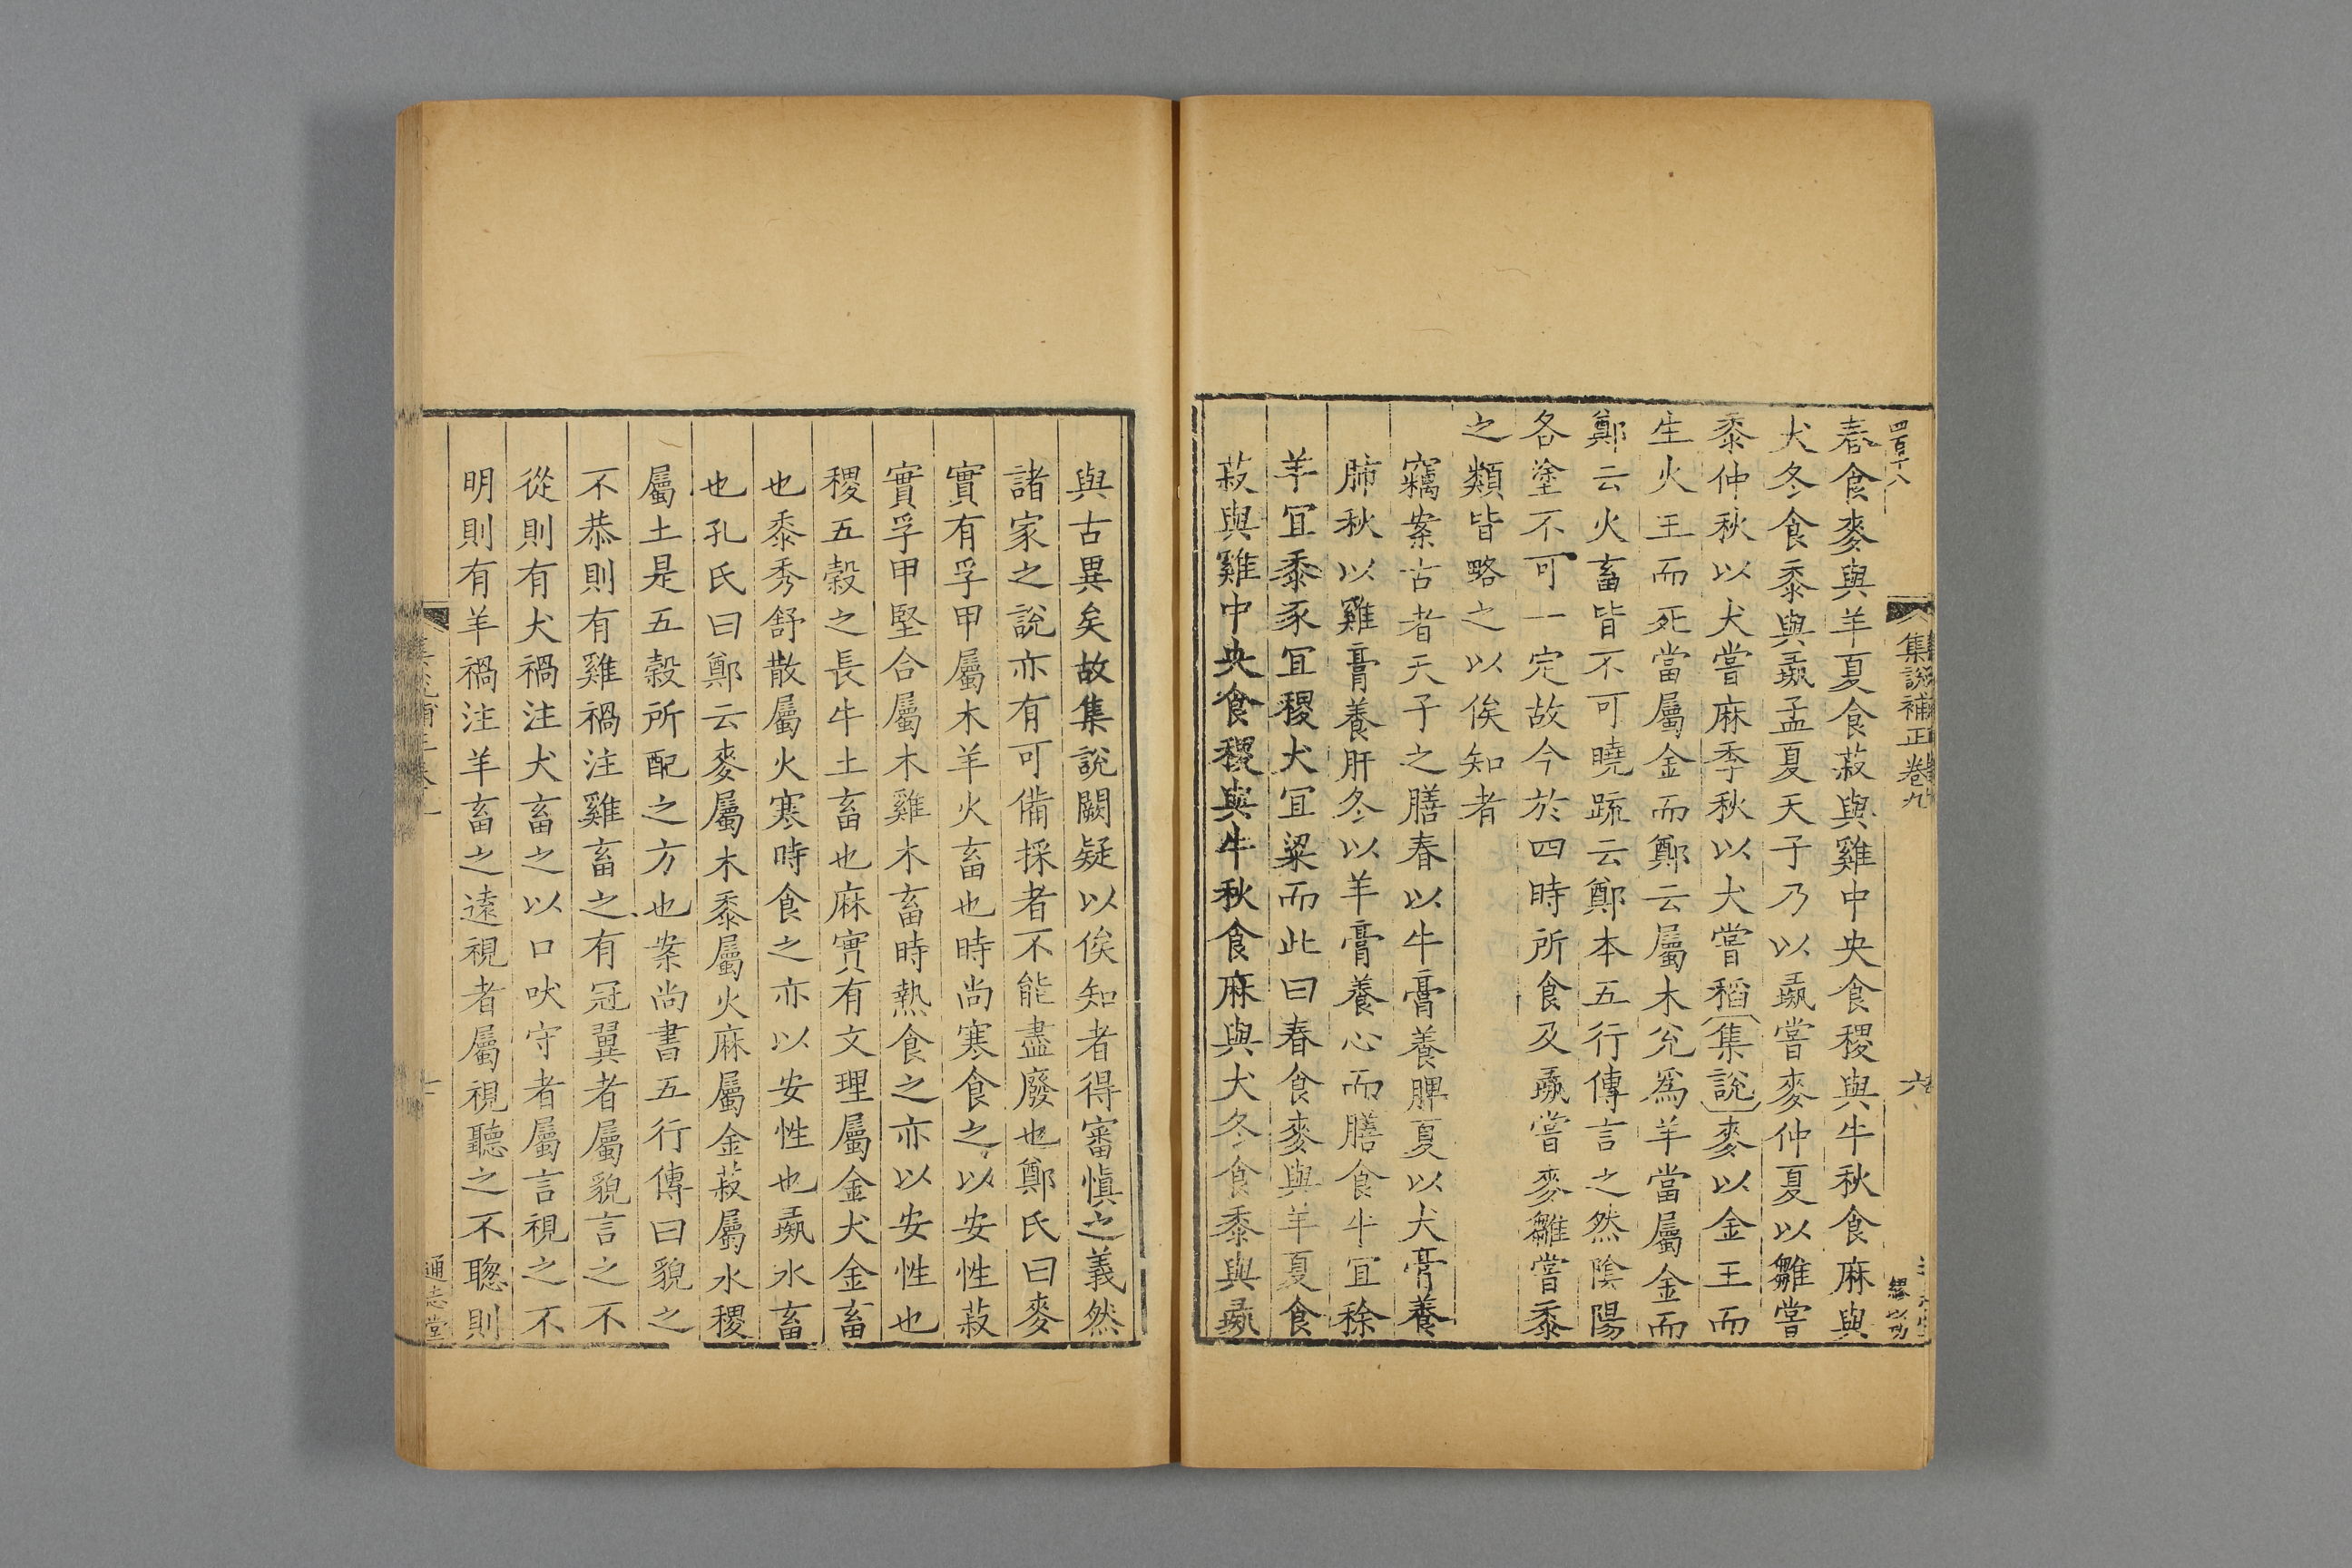 四百十八
集說補正卷九
六
春食麥與羊夏食菽與雞中央食稷與牛秋食麻與
犬冬食黍與彘孟夏天子乃以彘嘗麥仲夏以雛嘗
黍仲秋以犬嘗麻季秋以犬嘗稻〔集說〕麥以金王而
生火王而死當屬金而鄭云屬木兊爲羊當屬金而
鄭云火畜皆不可曉疏云鄭本五行傳言之然陰陽
各塗不可一定故今於四時所食及彘嘗麥雛嘗黍
之類皆略之以俟知者
竊案古者天子之膳春以牛膏養脾夏以犬膏養
肺秋以雞膏養肝冬以羊膏養心而膳食牛宜稌
羊宜黍豕宜稷犬宜粱而此曰春食麥與羊夏食
菽與雞中央食稷與牛秋食麻與犬冬食黍與彘
與古異矣故集說闕疑以俟知者得審愼之義然
諸家之說亦有可備採者不能盡廢也鄭氏曰麥
實有孚甲屬木羊火畜也時尚寒食之以安性菽
實孚甲堅合屬木雞木畜時熱食之亦以安性也
稷五穀之長牛土畜也麻實有文理屬金犬金畜
也黍秀舒散屬火寒時食之亦以安性也彘水畜
也孔氏曰鄭云麥屬木黍屬火麻屬金菽屬水稷
屬土是五穀所配之方也案尚書五行傳曰貌之
不恭則有雞禍注雞畜之有冠翼者屬貌言之不
從則有犬禍注犬畜之以口吠守者屬言視之不
明則有羊禍注羊畜之遠視者屬視聽之不聰則
通志堂